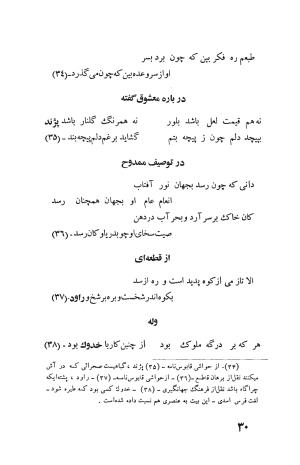 طبعم ره فکر بین که چون برد بسر
او از سر وعده بین که چون می گذرد-(۳۴)
در باره معشوق گفته
نه هم قیمت لعل باشد بلور نه همرنگ گلنار باشد پژند
بپیچد دلم چون ز پیچه بتم گشاید برغم دلم پیچه بند - (۳۵)
در توصیف ممدوح
دانی که چون رسد بجهان نور آفتاب
انعام عام او بجهان همچنان رسد
کان خاک برسر آرد و بحر آب در دهن
صیت سخای او چو بدریا و کان رسد. (۳۶)
از قطعه‌ای
الا تاز می از کوه پدید است و ره از سد
بکوه اندر شخست و بره بر شخ و راود.(۳۷)
وله
هر که بر درگه ملوک بود از چنین کار با خدوک بود . (۳۸)
(۳۴). از حواشی قابوس‌نامه - (۳۵) پژند ، گیاهیست صحرائی که در آش
میکنند نقل از برهان قاطع -(۳۶) - از حواشی قابوس‌نامه- (۳۷) - راود ، پشته‌ایکه
چراگاه باشد نقل از فرهنگ جهانگیری - (۳۸) - خدوک کسی بود که طیره شود -
لغت فرس اسدی - این بیت به عنصری هم نسبت داده شده‌است .
۳۰